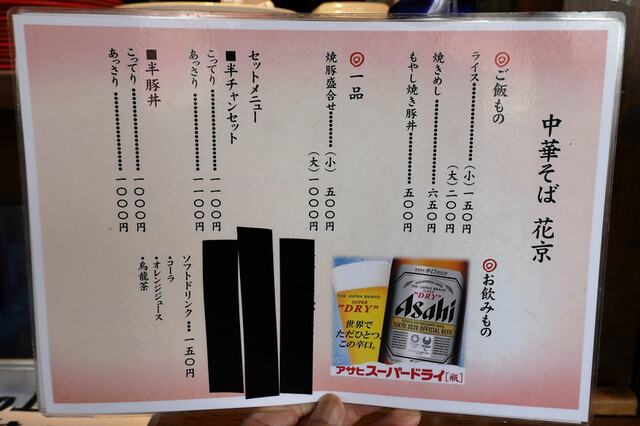 中華そば 花京
◎ご飯もの
ライス……(小)一五〇円
(大)二〇〇円
焼きめし……六五〇円
もやし焼き豚丼……五〇〇円
◎一品
焼豚盛合せ……(小)五〇〇円
(大)一〇〇〇円
セットメニュー
■半チャンセット
こってり……一一〇〇円
あっさり……一一〇〇円
■半豚丼
こってり……一〇〇〇円
あっさり……一〇〇〇円
◎お飲みもの
THE JAPAN BRAND
SUPER
"DRY"
世界で
ただひとつ、
この辛口。
Asahi
SUPER
"DRY"
TOKYO 2020 OFFICIAL BEER
アサヒスーパードライ[瓶]
ソフトドリンク…一五〇円
・コーラ
・オレンジジュース
・烏龍茶